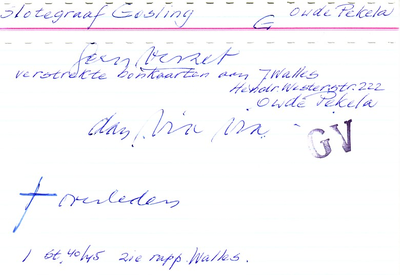 Slotegraaf Gosling G Oude Pekela
geen verzet
verstrekte bonkaarten aan J Walles
Hendr. Westerstr. 222
Oude Pekela
dan via via -
GV
† overleden
1 St. 40/45 zie rapp. Walles.